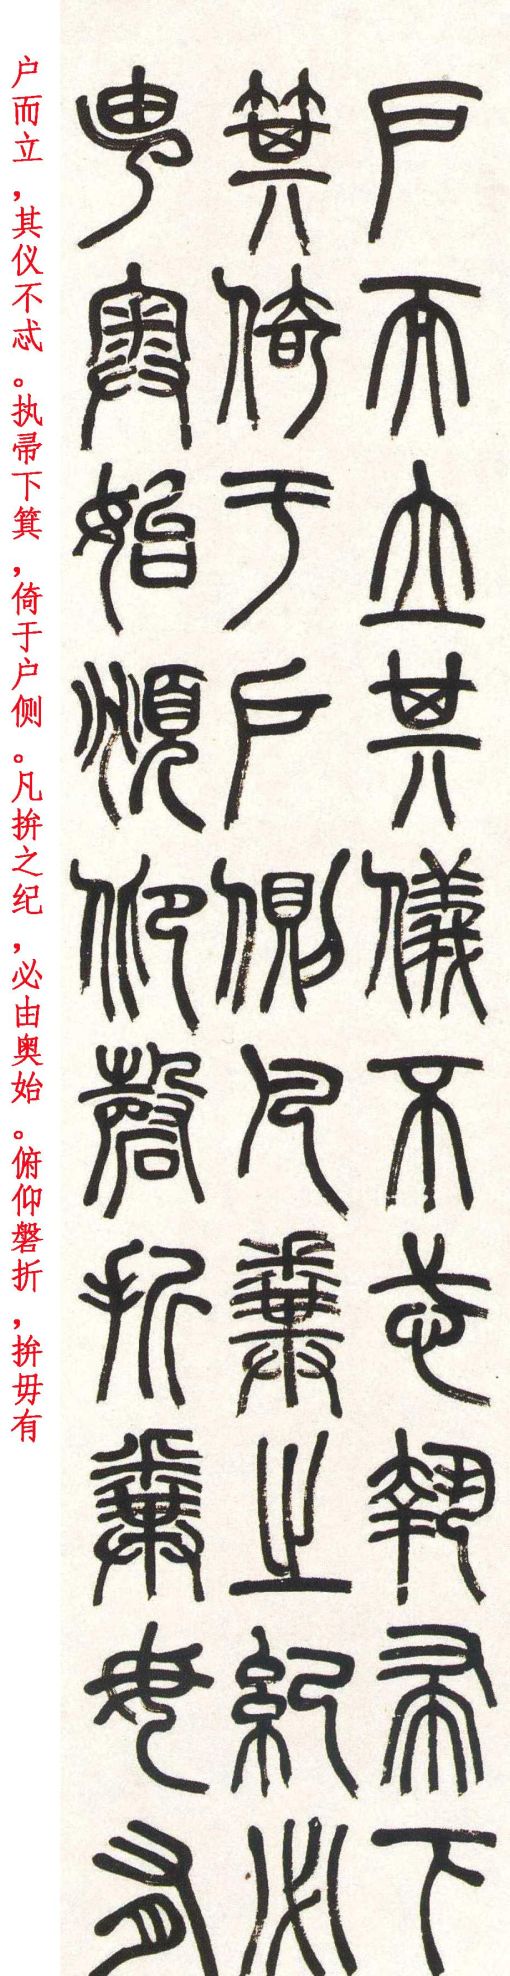 戶而立其儀不忒執帚下
箕倚于戶側凡糞之紀必
由奥始頫仰磬折糞毋有
户而立，其仪不忒。执帚下箕，倚于户侧。凡拚之纪，必由奥始。俯仰磐折，拚毋有